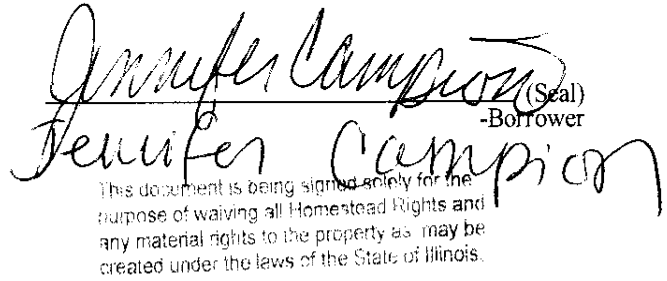 Jennifer Campion
(Seal)
-Borrower
Jennifer Campion
This document is being signed solely for the
purpose of waiving all Homestead Rights and
any material rights to the property as may be
created under the laws of the State of Illinois.